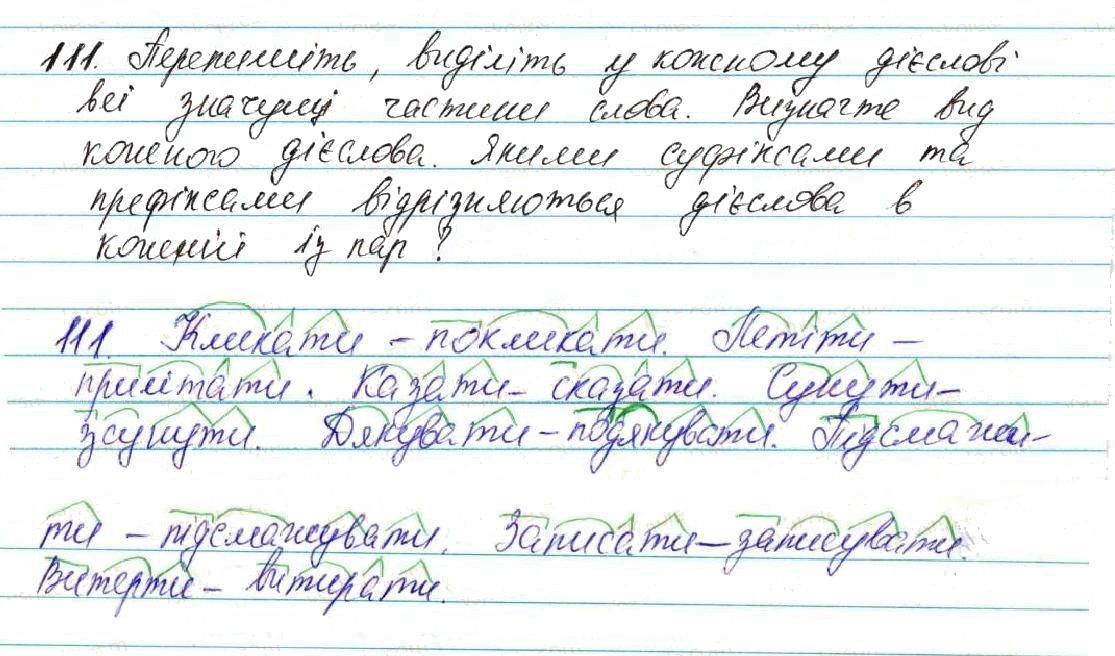 111. Перепишіть, виділіть у кожному дієслові
всі значущі частини слова. Визначте вид
кожного дієслова. Якими суфіксами та
префіксами відрізняються дієслова в
кожній із пар?
111. Кликати - покликати. Летіти -
прилітати. Казати - сказати. Сунути -
зсунути. Дякувати - подякувати. Підсмажи-
ти - підсмажувати. Записати - записувати.
Витерти - витирати.